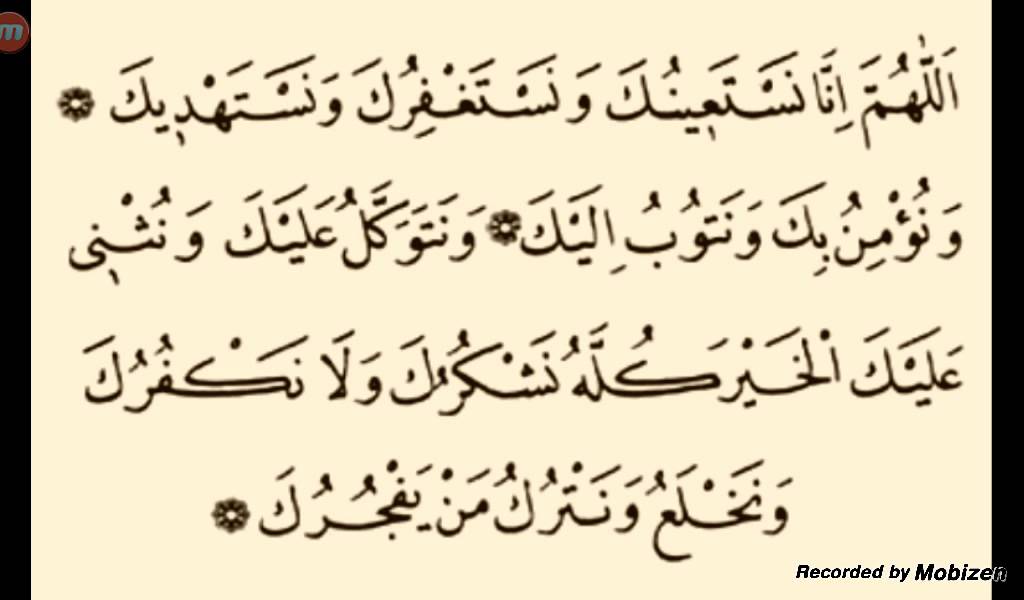 اَللّٰهُمَّ اِنَّا نَسْتَعٖينُكَ وَ نَسْتَغْفِرُكَ وَنَسْتَهْدٖيكَ ۞
وَ نُؤْمِنُ بِكَ وَنَتُوبُ اِلَيْكَ ۞ وَنَتَوَكَّلُ عَلَيْكَ وَ نُثْنٖى
عَلَيْكَ الْخَيْرَ كُلَّهُ نَشْكُرُكَ وَ لَا نَكْفُرُكَ
وَنَخْلَعُ وَنَتْرُكُ مَنْ يَفْجُرُكَ ۞
m
Recorded by Mobizen